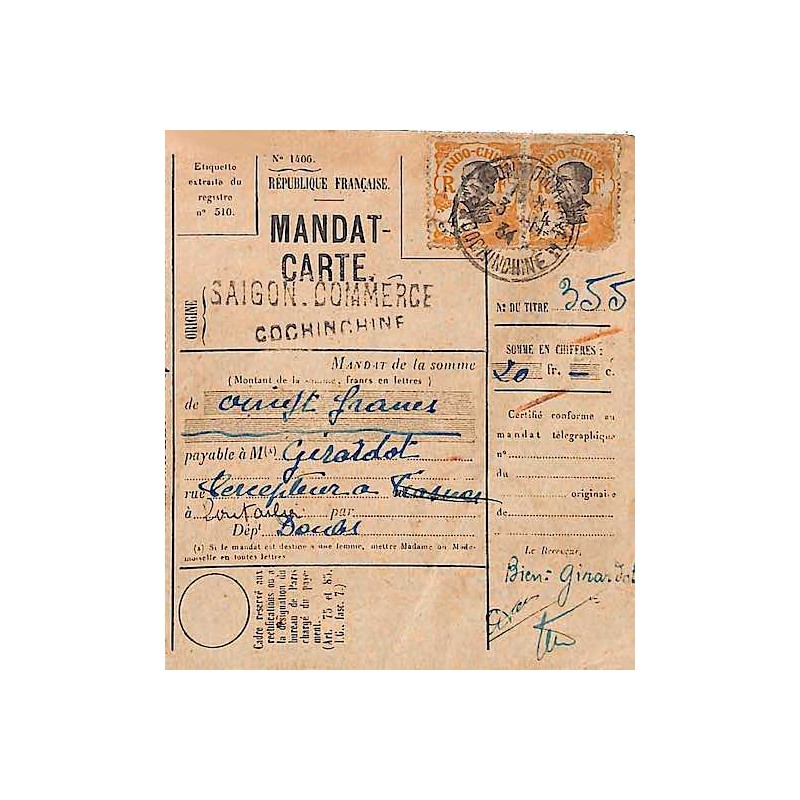 Etiquette
extraite du
registre
n° 510.
N° 1406.
RÉPUBLIQUE FRANÇAISE.
MANDAT-
CARTE.
ORIGINE
SAIGON. COMMERCE
COCHINCHINE
INDO-CHINE
R F
INDO-CHINE
R F
COCHINCHINE
N° DU TITRE 355
SOMME EN CHIFFRES :
20 fr. — c.
MANDAT de la somme
(Montant de la somme, francs en lettres)
de vingt francs
payable à M(a) Girardot
rue Percepteur a
à Pontarlier par
Dépt Doubs
(a) Si le mandat est destiné à une femme, mettre Madame ou Made-
moiselle en toutes lettres
Certifié conforme au
mandat télégraphique
n°
du
originaire
de
Le Receveur,
Bien: Girardot
Cadre réservé aux
rectifications ou à
la désignation du
bureau de Paris
chargé du paye-
ment.
(Art. 75 et 85,
I.G., fasc. 7.)